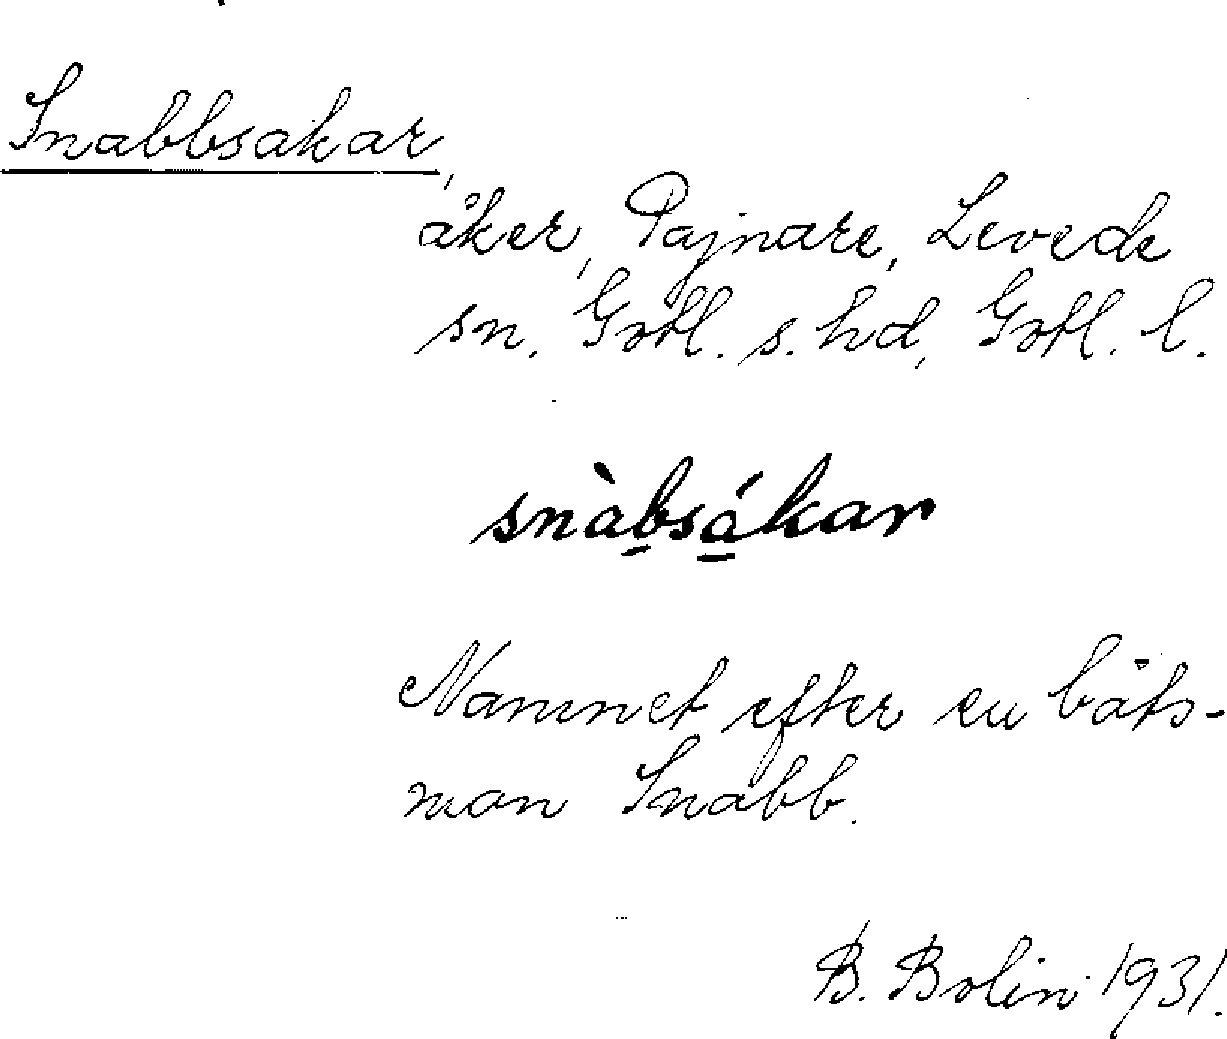 Snabbsakar,
åker, Pajnare, Levede
sn, Gotl. s. hd, Gotl. l.
snàbsákar
Namnet efter en båts-
man Snabb.
B. Bolin 1931.